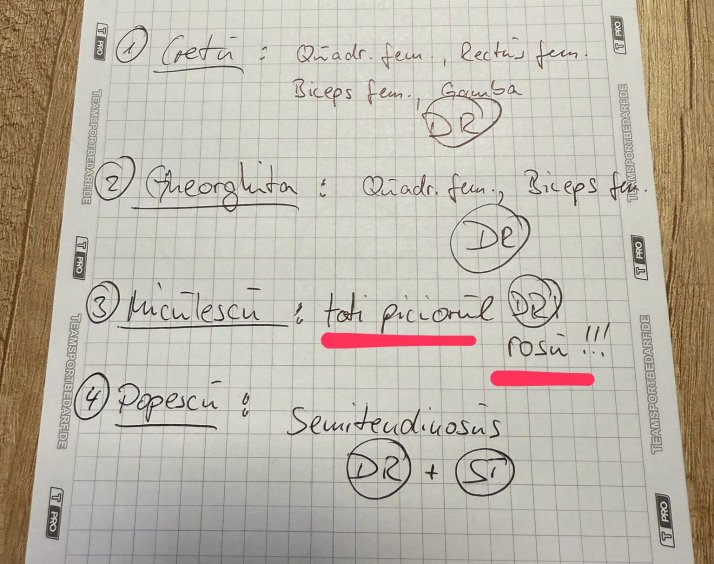 ① Cretu : Quadr. fem., Rectus fem.
Biceps fem., Gamba
DR
② Gheorghita : Quadr. fem., Biceps fem.
DR
③ Niculescu : toti piciorul DR!
rosu !!!
④ Popescu : Semitendinosus
DR + ST
T PRO
TEAMSPORTBEDARF.DE
T PRO
TEAMSPORTBEDARF.DE
T PRO
T PRO
TEAMSPORTBEDARF.DE
T PRO
TEAMSPORTBEDARF.DE
T PRO